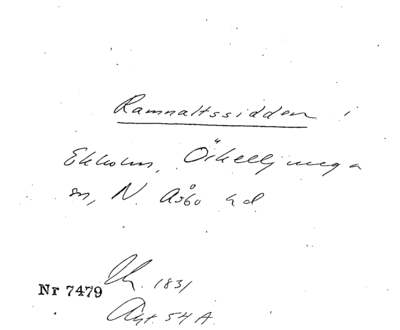 Ramnaltssidden i
Ekholm, Örkelljunga
sn, N. Åsbo hd
Nr 7479
1831
Akt. 54 A